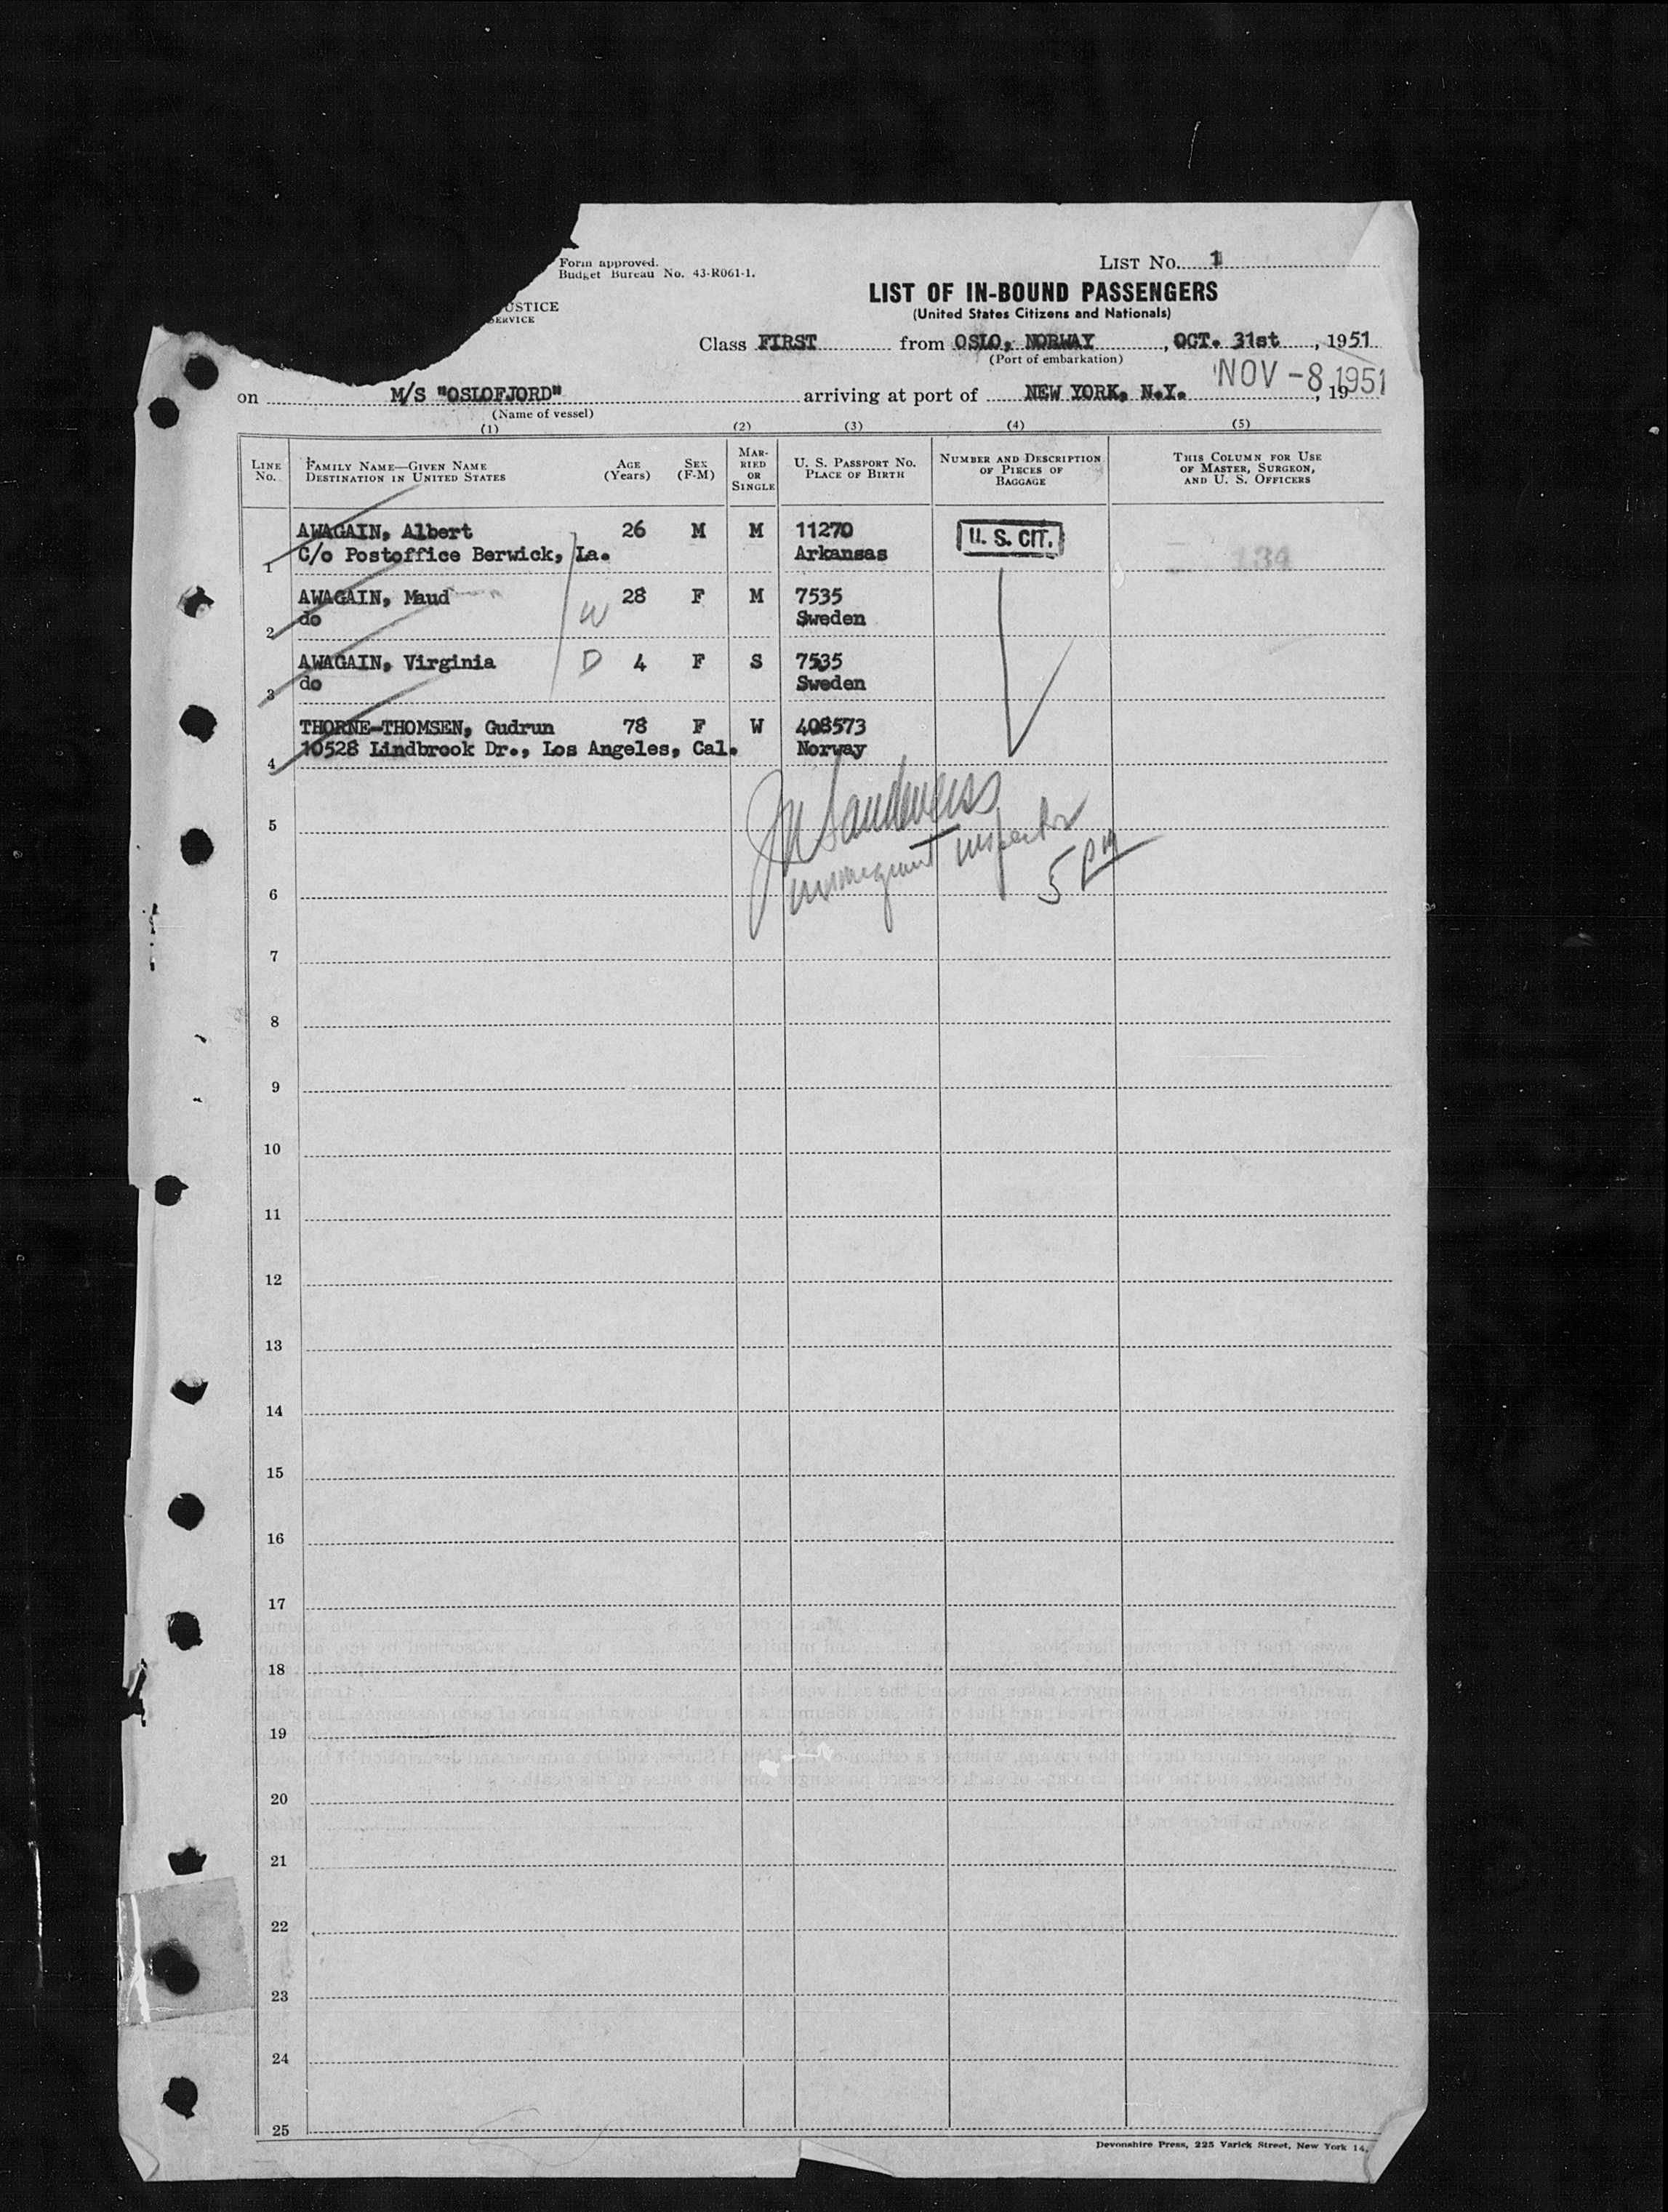 Form approved.
Budget Bureau No. 43-R061-1.
LIST NO. 1
USTICE
SERVICE
LIST OF IN-BOUND PASSENGERS
(United States Citizens and Nationals)
Class FIRST from OSLO, NORWAY, OCT. 31st, 1951
(Port of embarkation)
on M/S "OSLOFJORD" arriving at port of NEW YORK, N.Y. NOV -8 1951, 19
(Name of vessel)
(1) (2) (3) (4) (5)
LINE NO. FAMILY NAME—GIVEN NAME DESTINATION IN UNITED STATES AGE (Years) SEX (F-M) MARRIED OR SINGLE U. S. PASSPORT NO. PLACE OF BIRTH NUMBER AND DESCRIPTION OF PIECES OF BAGGAGE THIS COLUMN FOR USE OF MASTER, SURGEON, AND U. S. OFFICERS
AWAGAIN, Albert 26 M M 11270 U. S. CIT.
1 C/o Postoffice Berwick, La. Arkansas 134
AWAGAIN, Maud W 28 F M 7535
2 do Sweden
AWAGAIN, Virginia D 4 F S 7535
3 do Sweden
THORNE-THOMSEN, Gudrun 78 F W 408573
4 10528 Lindbrook Dr., Los Angeles, Cal. Norway
5
immigrant inspector
5 PM
6
7
8
9
10
11
12
13
14
15
16
17
18
19
20
21
22
23
24
25
Devonshire Press, 225 Varick Street, New York 14.